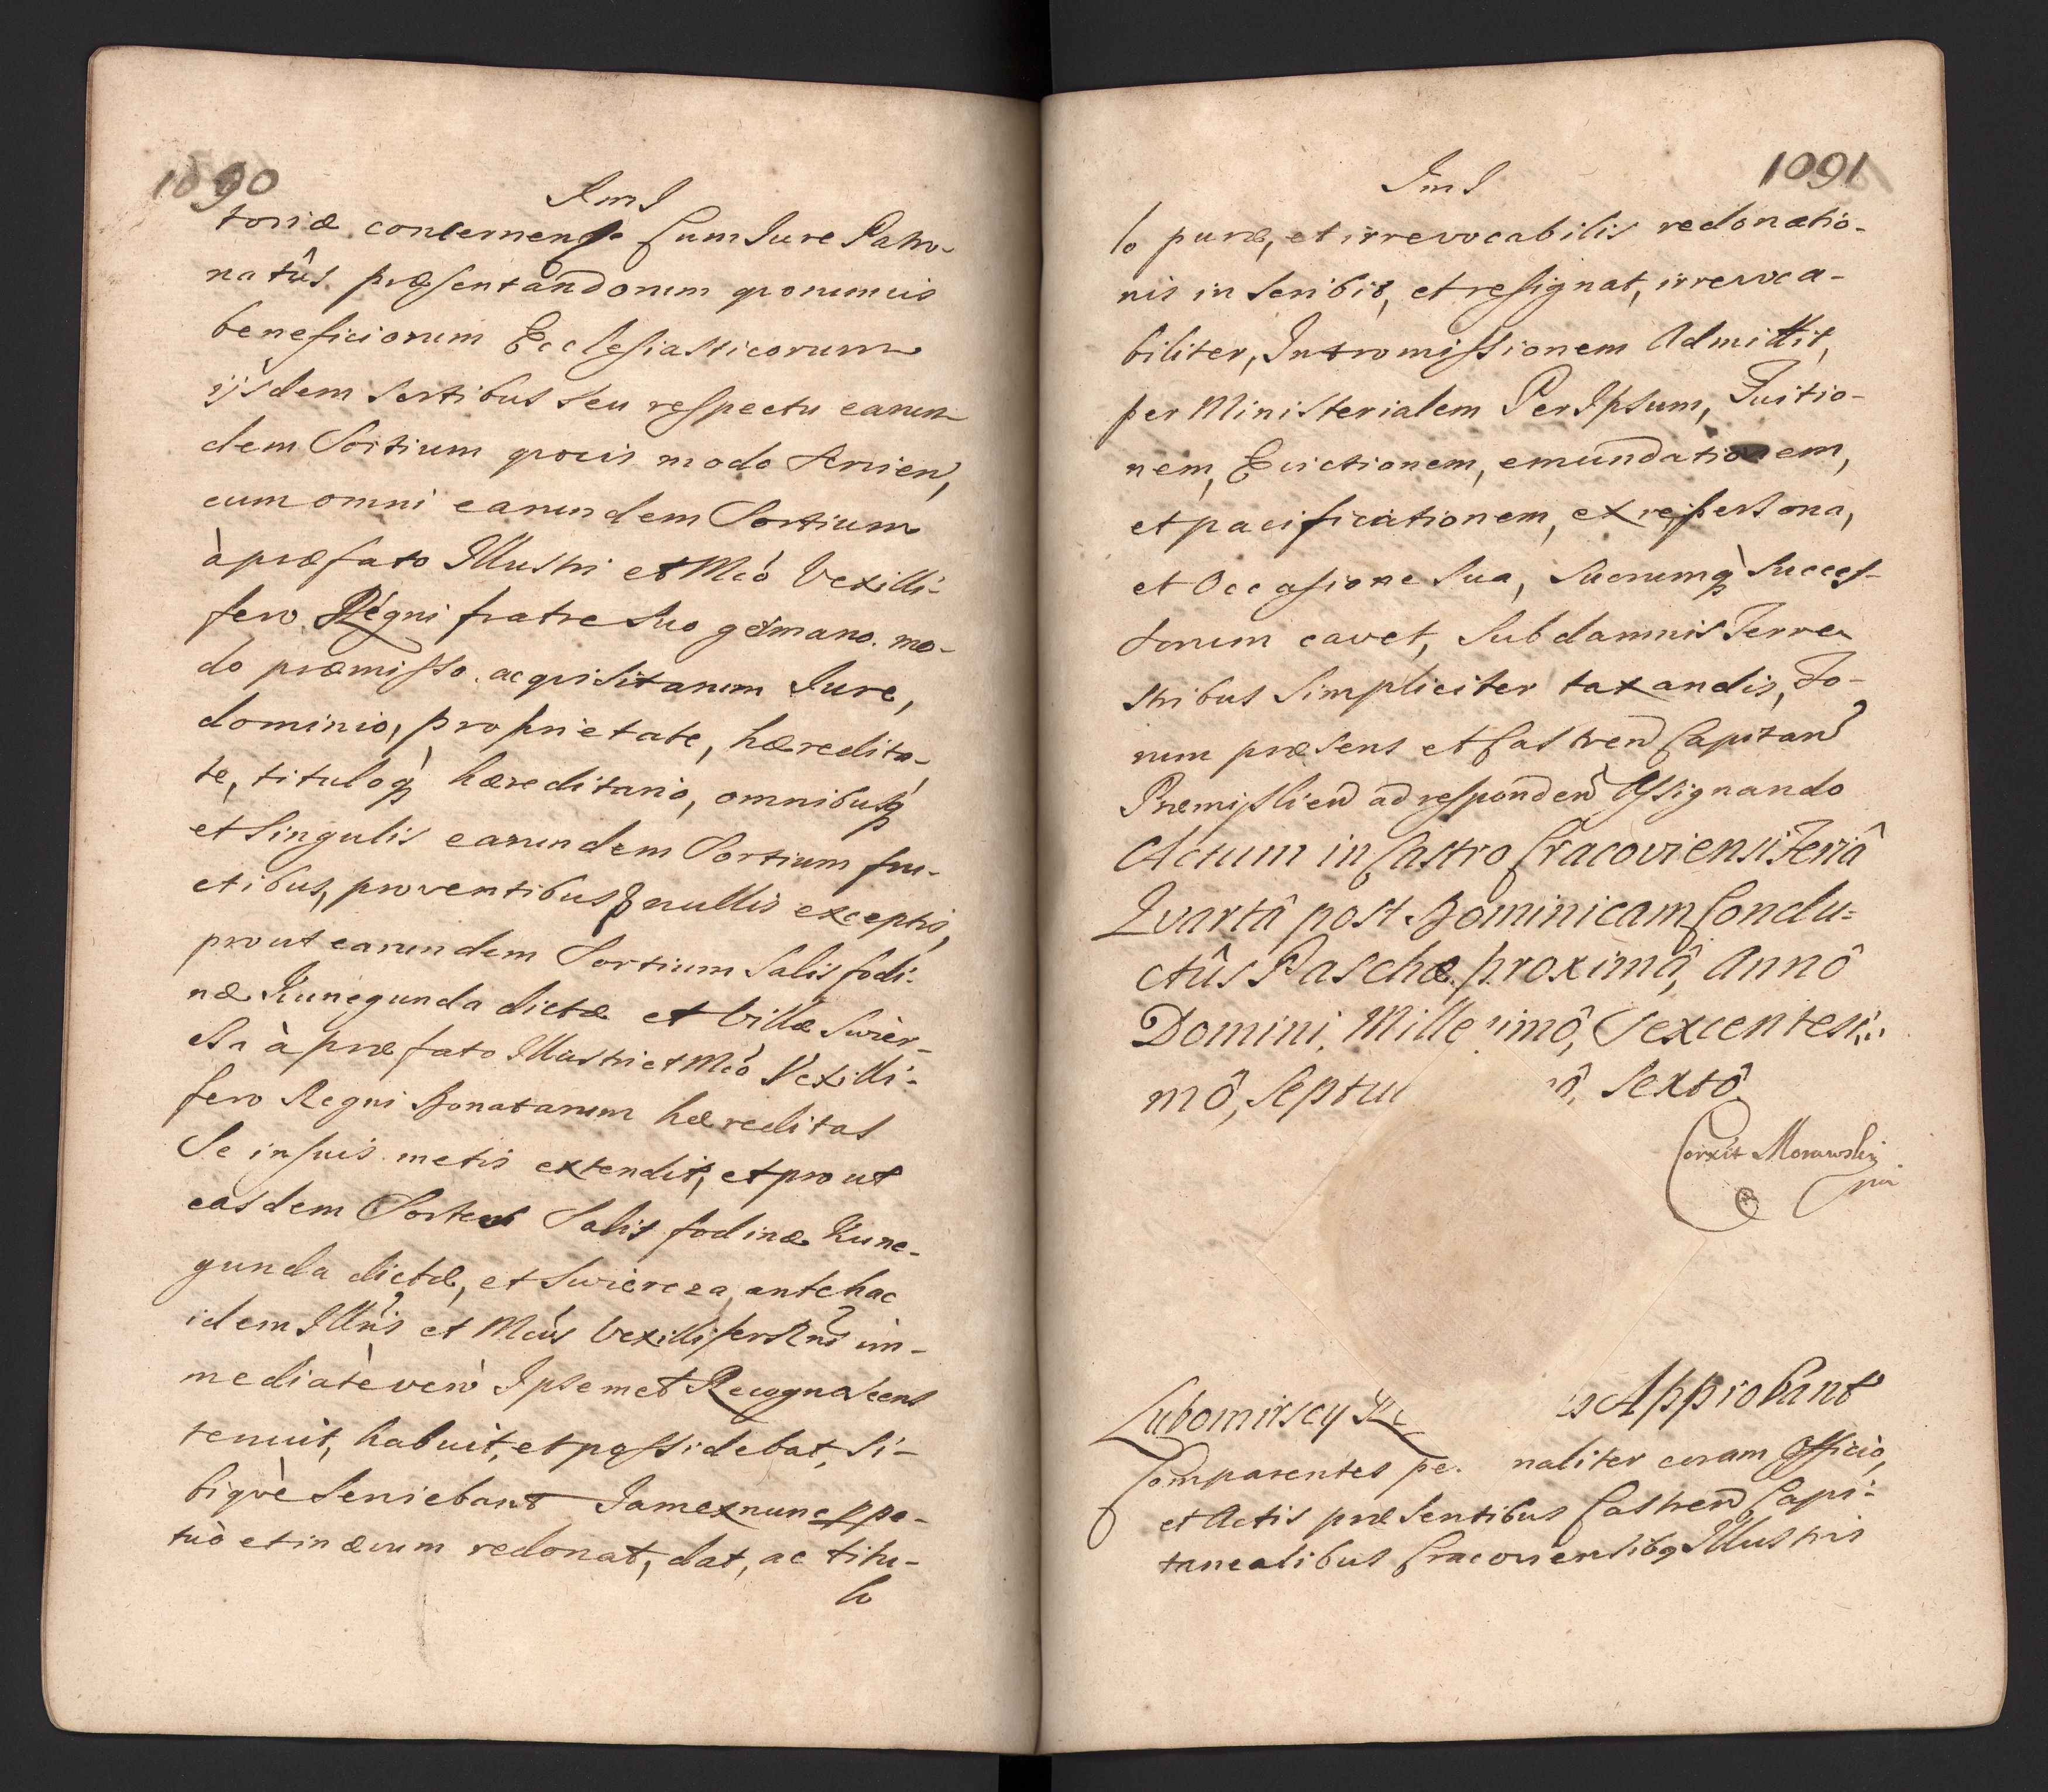 1090
RmJ
toriæ concernen Cum Jure Patro-
natûs præsentandorum quorumvis
beneficiorum Ecclesiasticorum
ijsdem sortibus seu respectu earun
dem Sortium quovis modo servien,
cum omni earundem Sortium
à præfato Illustri et Mcó Vexilli-
fero Régni fratre suo germano. mo-
do præmisso. acquisitarum Jure,
dominio, proprietate, hæredita-
te, tituloq hæreditario, omnibusq
et singulis earundem Sortium fru-
ctibus, proventibus nullis exceptis,
prout earundem Sortium Salis fodi-
næ Kunegunda dictæ et Villæ Swier-
à præfato Illustri et Mcó Vexilli-
fero Regni Donatarum hæreditas
Se in suis metis extendit, et prout
easdem Sortes Salis fodinæ Kune-
gunda dictæ, et Swiercza, antehac
idem Illris et Mcús Vexillifer Rni im-
mediatè verò Ipsemet Recognoscens
tenuit, habuit, et possidebat, si-
biqvè serviebant Jam ex nunc ppe-
tuò et in ævum redonat, dat, ac titu-
lo
1091
JmJ
lo puræ, et irrevocabilis redonatio-
nis inscribit, et resignat, irrevoca-
biliter, Intromissionem Admittit,
per Ministerialem Per Ipsum, Tuitio-
nem, Evictionem, emundationem,
et pacificationem, ex re, persona,
et Occasione Sua, Suorumq Succes-
sorum cavet, Sub damnis Terre-
stribus Simpliciter taxandis, Fo-
rum præsens et Castren Capitan
Præmislien ad responden Assignando
Actum in Castro Cracoviensi Feriâ
Quartâ post Dominicam Condu=
ctûs Paschæ proximâ, Annô
Domini, Mille imô, Sexcentesi..
mô, Septu ô, Sextô.
Corxit Morawski
mp
Lubomirscy Re s Approbant
Comparentes pe naliter coram Officio,
et Actis præsentibus Castren Capi-
tanealibus Cracoviensibq Illustris